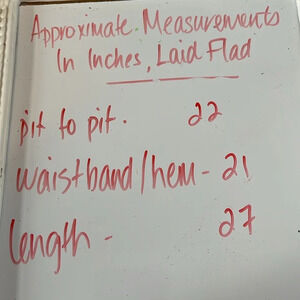 Approximate Measurements
In Inches, Laid Flad
pit to pit. 22
waistband/hem - 21
length - 27